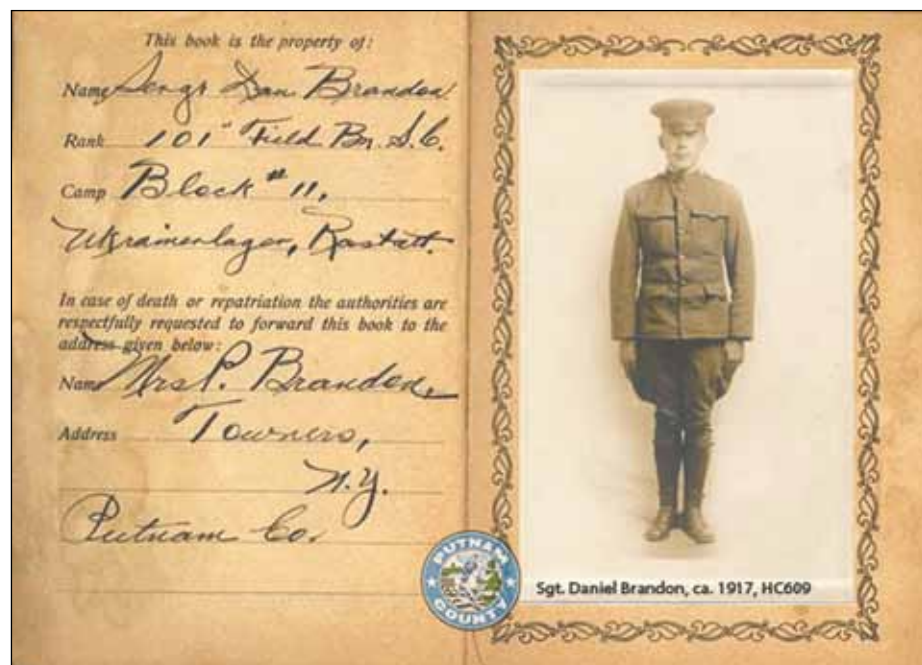 This book is the property of:
Name Sergt Dan Brandon
Rank 101" Field Bn. S.C.
Camp Block # 11,
Ukrainenlager, Rastatt.
In case of death or repatriation the authorities are
respectfully requested to forward this book to the
address given below:
Name Mrs P. Brandon,
Address Towners,
N.Y.
Putnam Co.
PUTNAM
COUNTY
Sgt. Daniel Brandon, ca. 1917, HC609